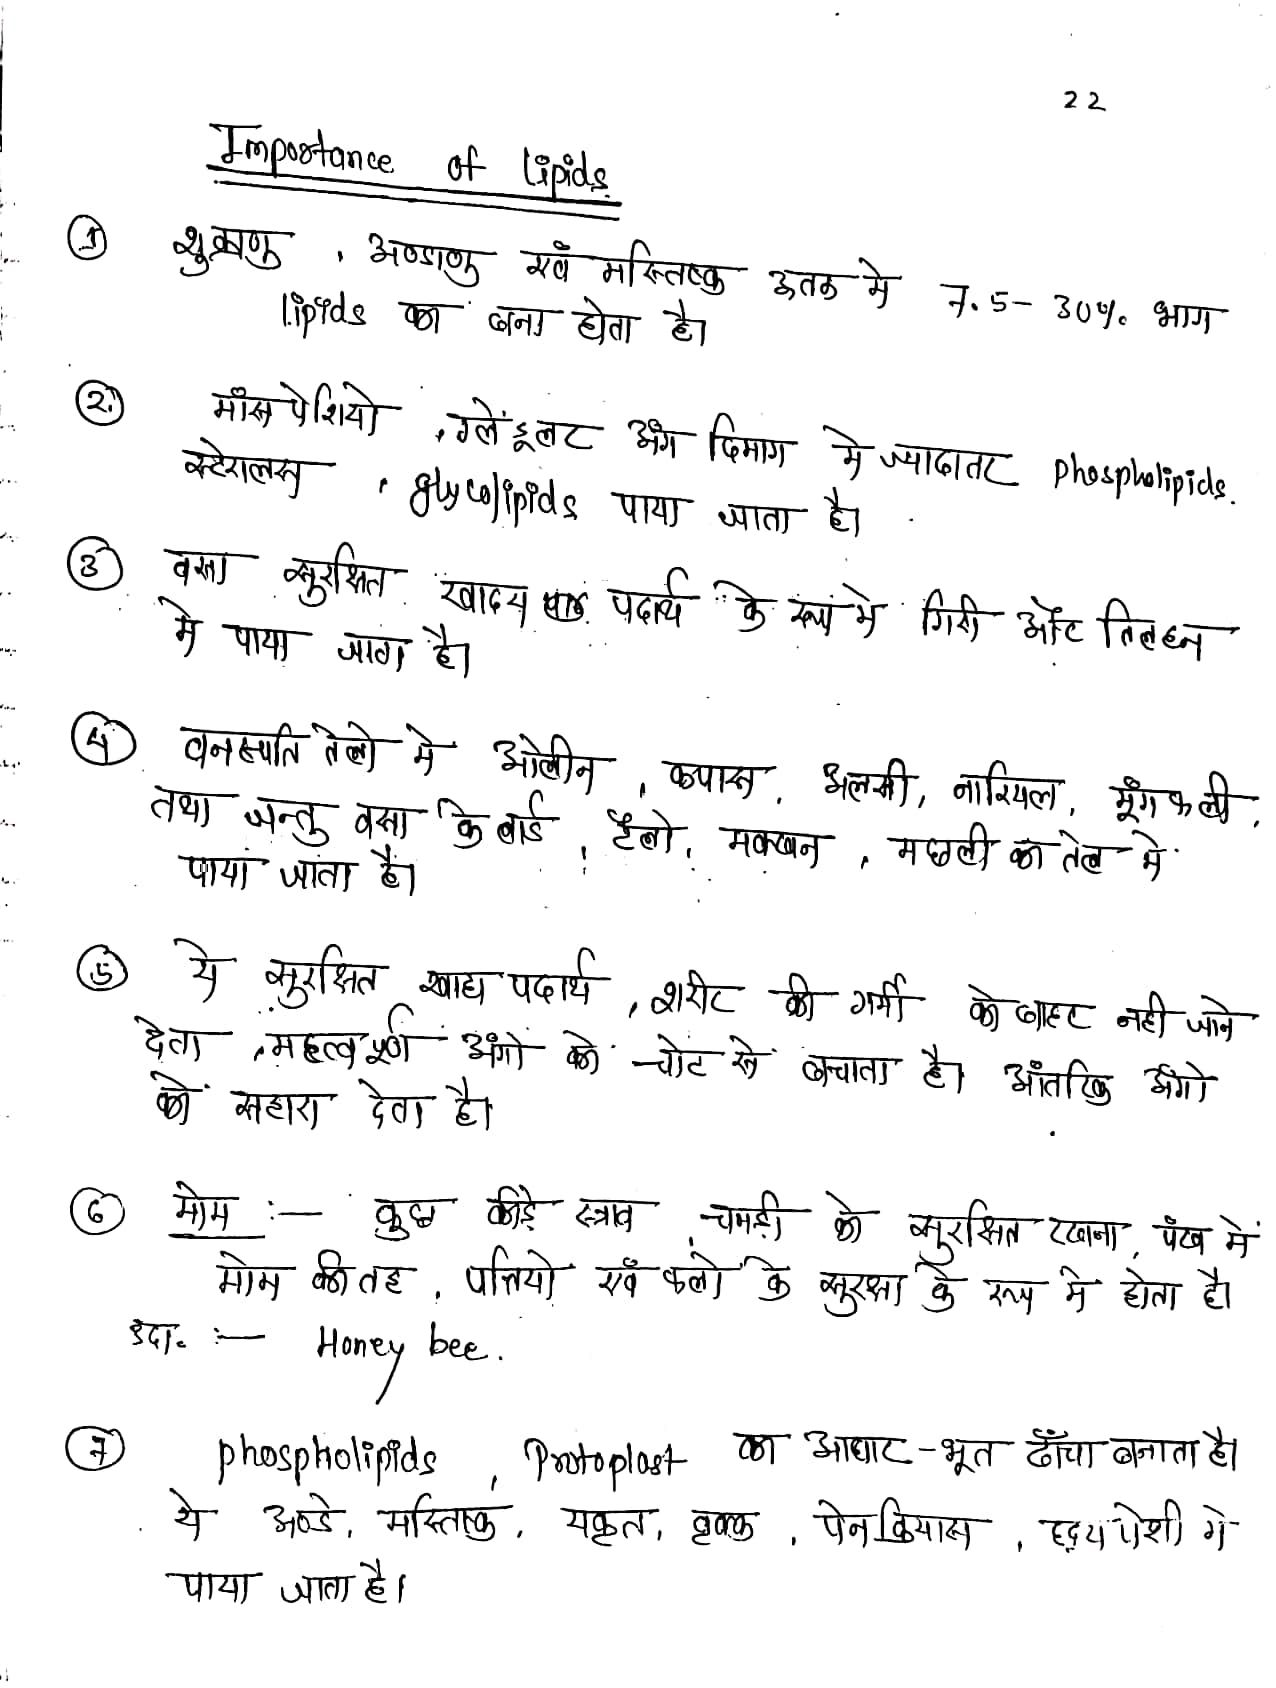 22
Importance of lipids.
① शुक्राणु , अण्डाणु एवं मस्तिष्क ऊतक मे 7.5 - 30% भाग
lipids का बना होता है।
② माँसपेशियो , ग्लेंडूलर अंग दिमाग मे ज्यादातर phospholipids.
स्टेरालस , glycolipids पाया जाता है।
③ वसा सुरक्षित खादय पदार्थ के रूप मे गिरी और तिलहन
मे पाया जाता है।
④ वनस्पति तेलो मे ओलीन , कपास , अलसी, नारियल, मूँगफली,
तथा जन्तु वसा कि लार्ड , टैलो, मक्खन , मछली का तेल मे
पाया जाता है।
⑤ ये सुरक्षित खाद्य पदार्थ , शरीर की गर्मी को बाहर नही जाने
देता , महत्वपूर्ण अंगो को चोट से बचाता है। आंतरिक अंगो
को सहारा देता है।
⑥ मोम :— कुछ कीड़े स्त्राव , चमड़ी को सुरक्षित रखना, पंख में
मोम की तह , पत्तियो एवं फलो कि सुरक्षा के रूप मे होता है।
उदा. :— Honey bee.
⑦ phospholipids , Protoplast का आधार-भूत ढाँचा बनाता है।
ये अण्डे, मस्तिष्क, यकृत, वृक्क , पेनक्रियास , हृदय पेशी मे
पाया जाता है।